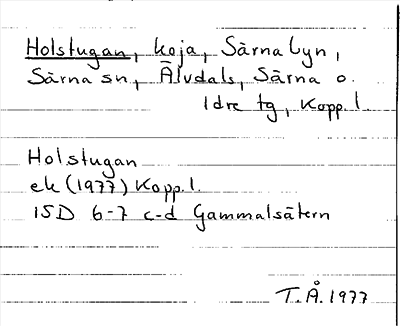 Holstugan, koja, Särna byn,
Särna sn, Älvdals, Särna o.
Idre tg, Kopp. l.
Holstugan
ek (1977) Kopp. l.
15D 6-7 c-d Gammalsätern
T.Å. 1977